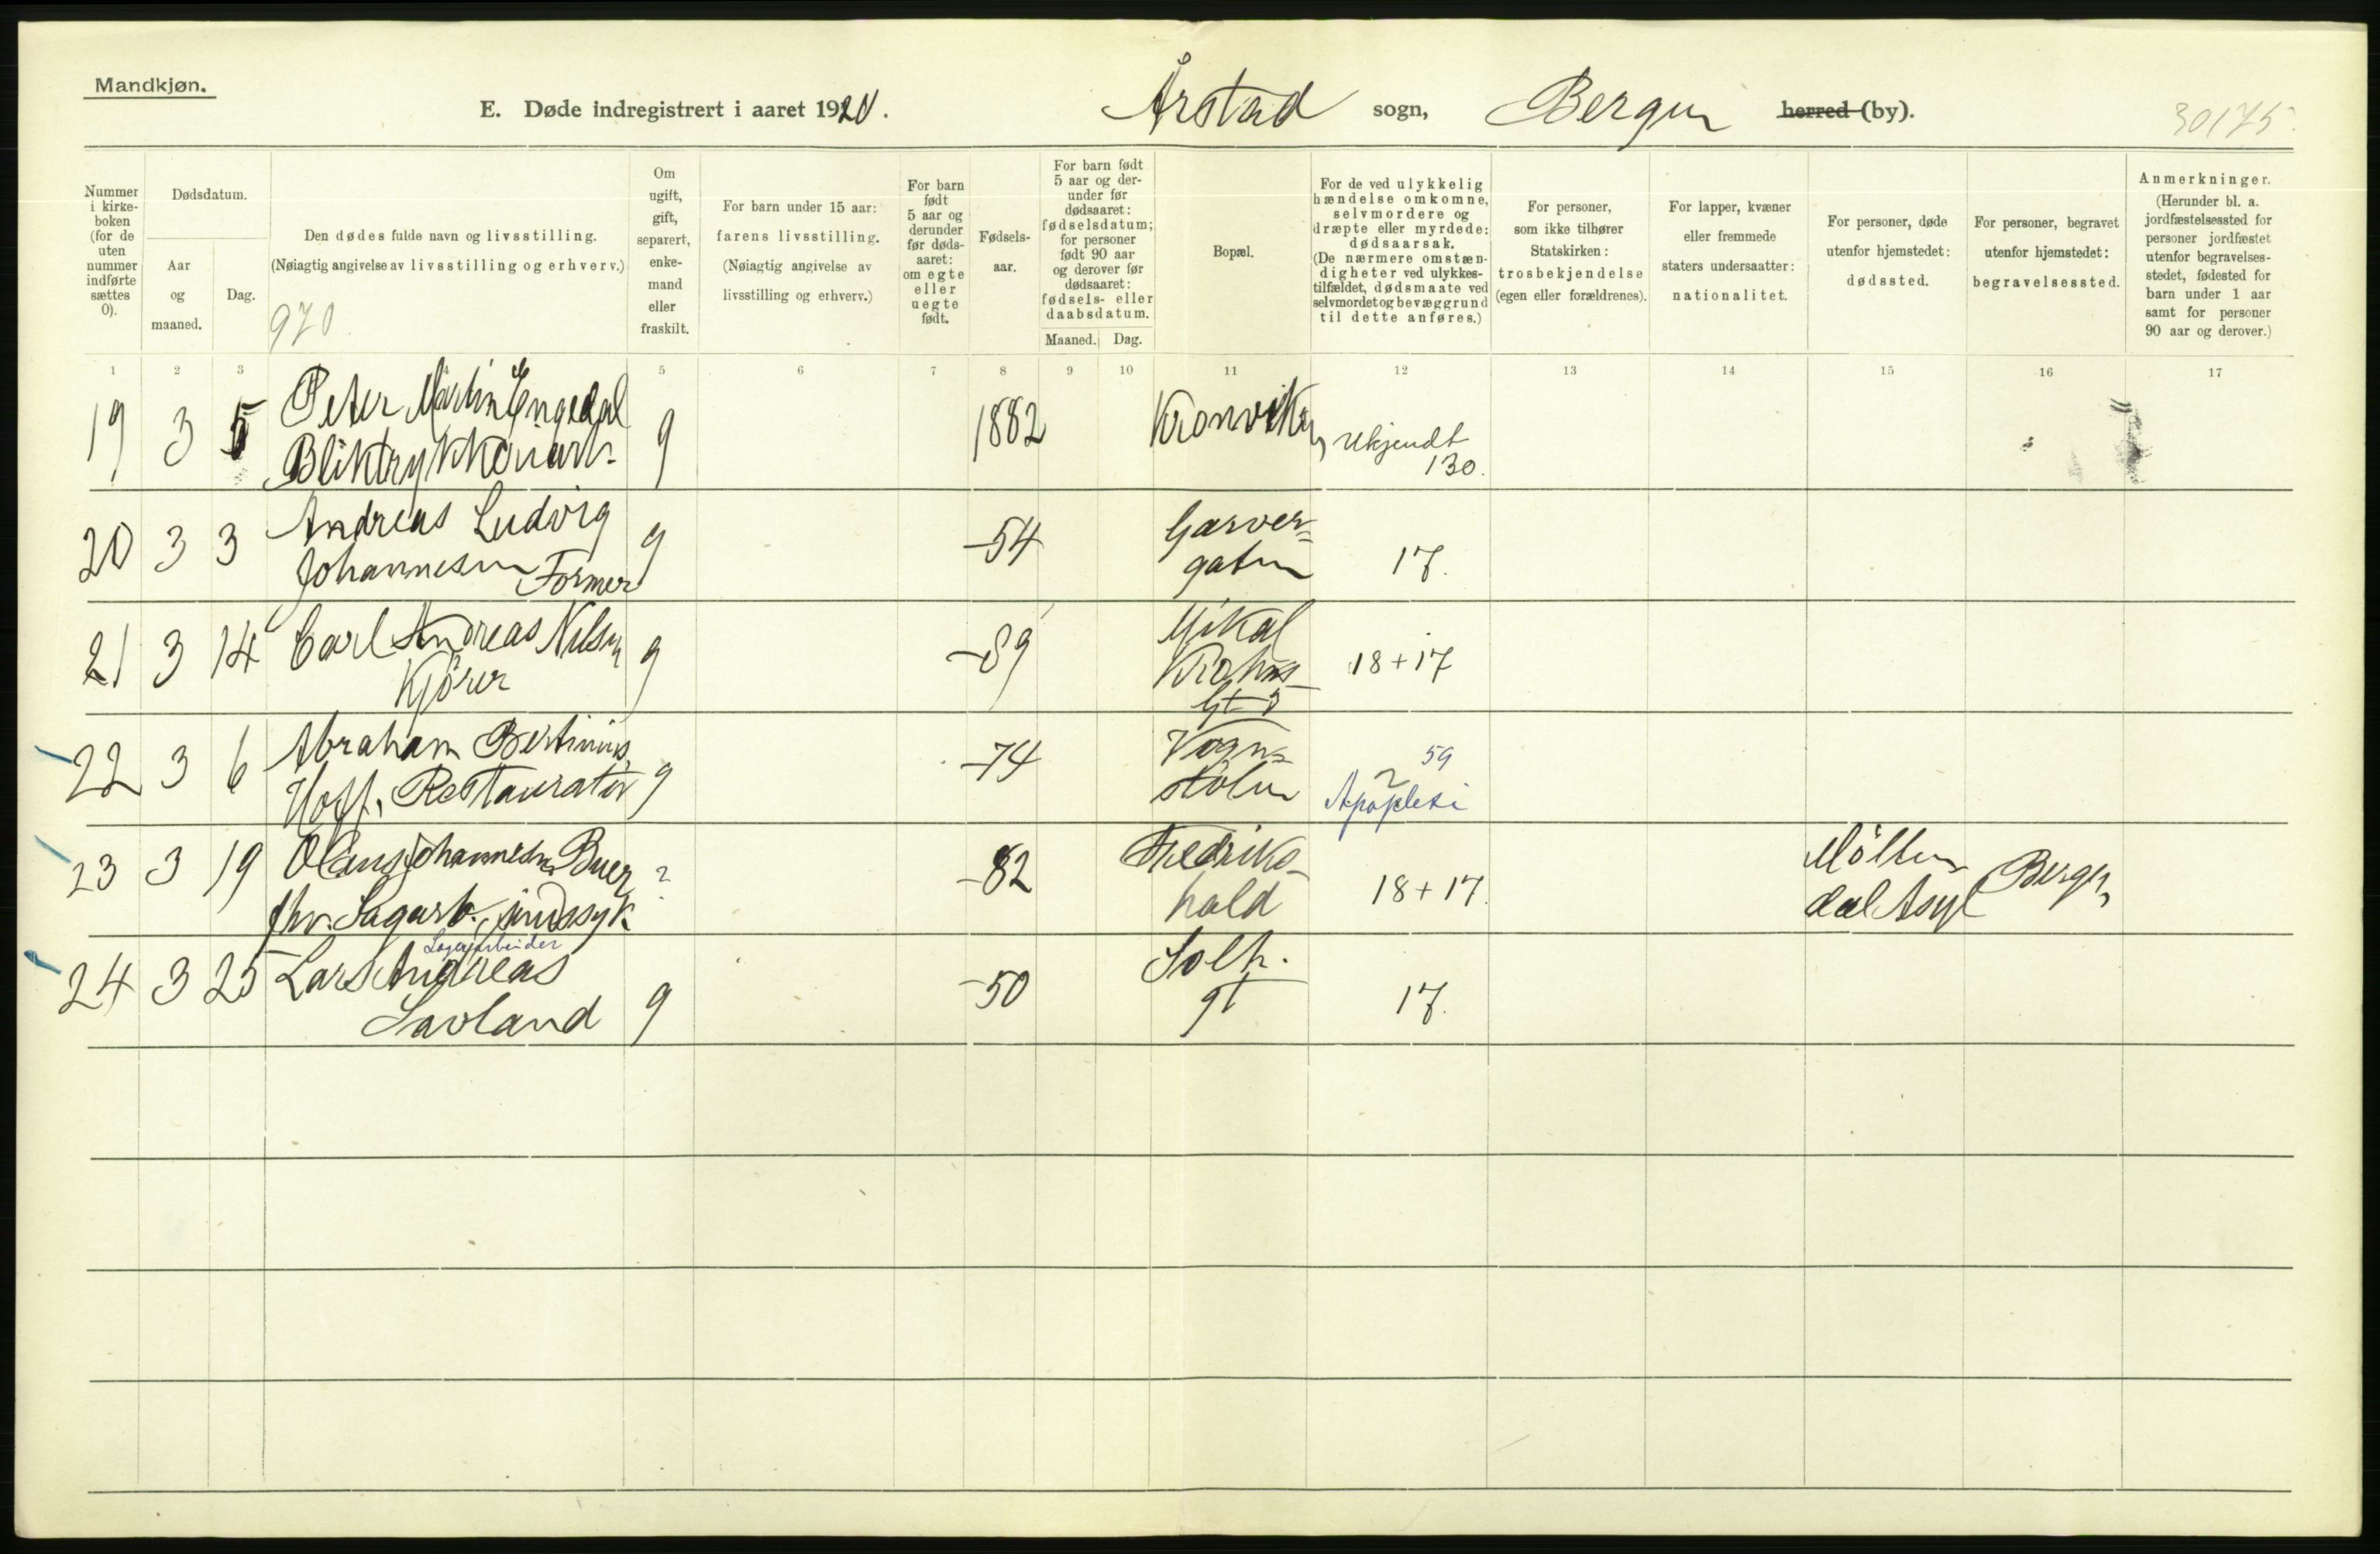 Mandkjøn.
E. Døde indregistrert i aaret 1920. Årstad sogn, Bergen herred (by). 30175.
Nummer i kirke-boken (for de uten nummer indførte sættes 0).
Dødsdatum.
Aar og maaned.
Dag.
Den dødes fulde navn og livsstilling.
(Nøiagtig angivelse av livsstilling og erhverv.)
970
Om ugift, gift, separert, enke-mand eller fraskilt.
For barn under 15 aar: farens livsstilling.
(Nøiagtig angivelse av livsstilling og erhverv.)
For barn født 5 aar og derunder før døds-aaret: om egte eller uegte født.
Fødsels-aar.
For barn født 5 aar og der-under før dødsaaret: fødselsdatum; for personer født 90 aar og derover før dødsaaret: fødsels- eller daabsdatum.
Maaned. Dag.
Bopæl.
For de ved ulykkelig hændelse omkomne, selvmordere og dræpte eller myrdede: dødsaarsak.
(De nærmere omstæn-digheter ved ulykkes-tilfældet, dødsmaate ved selvmordet og bevæggrund til dette anføres.)
For personer, som ikke tilhører Statskirken: trosbekjendelse (egen eller forældrenes).
For lapper, kvæner eller fremmede staters undersaatter: nationalitet.
For personer, døde utenfor hjemstedet: dødssted.
For personer, begravet utenfor hjemstedet: begravelsessted.
Anmerkninger.
(Herunder bl. a. jordfæstelsessted for personer jordfæstet utenfor begravelses-stedet, fødested for barn under 1 aar samt for personer 90 aar og derover.)
1 2 3 4 5 6 7 8 9 10 11 12 13 14 15 16 17
19 3 5 Peter Martin Engedal g 1882 Kronviken ukjendt
130.
20 3 3 Andreas Ludvig g -54 Garver=
Johannesen Former gaten 17.
21 3 14 Carl Andreas Nilsen g -89 Mikal
Kjörer Krohns 18+17
Gt
22 3 6 Abraham Bertinius g -74 Vogn= 59
Hoff, Restauratör stölen Apopleksi
23 3 19 Olaus Johannesen Buer ? -82 Fredriks- Möllen
fhv. Sagarb. sindssyk hald 18+17. dal Asyl Bergen
Lagerarbeider
24 3 25 Lars Andreas g -50 Solh.
Lavland gt 17.